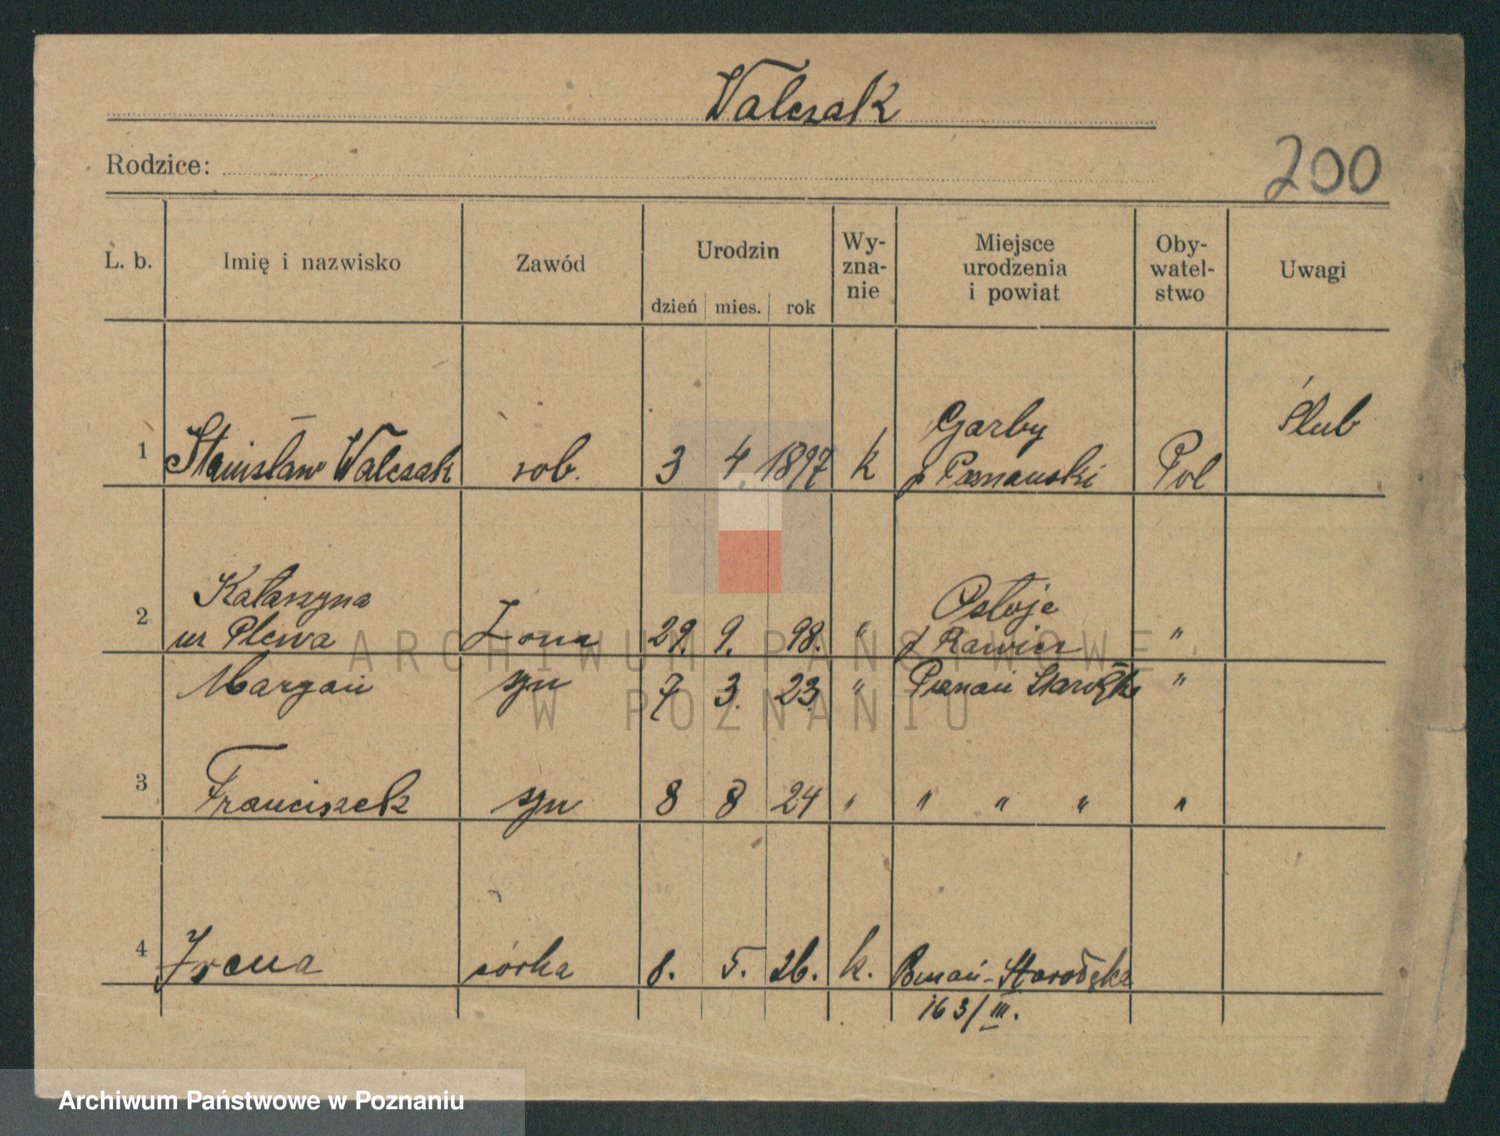 Walczak
Rodzice:
200
L. b. Imię i nazwisko Zawód Urodzin dzień mies. rok Wy-zna-nie Miejsce urodzenia i powiat Oby-watel-stwo Uwagi
Garby Ślub
1 Stanisław Walczak rob. 3 4 1897 k p Poznański Pol
Katarzyna Ostoje
2 ur Plewa żona 29. 9. 98. " p Rawicz "
Maryan syn 7 3. 23. " Poznań Starołęka "
3 Franciszek syn 8 8 24 " " " " "
4 Irena córka 8. 5. 26. k. Poznań-Starołęka
163/III.
ARCHIWUM PAŃSTWOWE
W POZNANIU
Archiwum Państwowe w Poznaniu